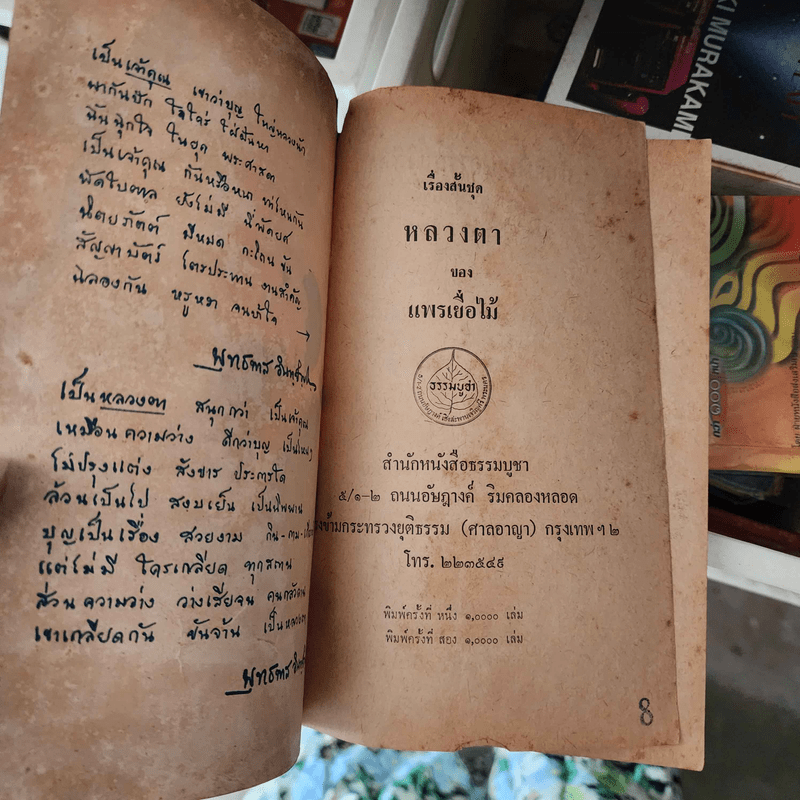 เป็นเจ้าคุณ เขาว่าบุญ ใหญ่หลวงนัก
พากันชัก ใจใคร่ ใฝ่ฝันหา
นั้นฉุกใจ ในยุค พระศาสดา
เป็นเจ้าคุณ กันหรือหนา ท่าไหนกัน
พัดใบตาล ยังไม่มี นี่พัดยศ
นิตยภัตต์ มีหมด กะโถน ขัน
สัญญาบัตร์ โตรประทาน งานสำคัญ
ฉลองกัน หรูหรา จนบ้าใจ
พุทธทาส อินทปัญโญ
เป็นหลวงตา สนุกกว่า เป็นเจ้าคุณ
เหมือนความว่าง ดีกว่าบุญ เป็นไหนๆ
ไม่ปรุงแต่ง สังขาร ประการใด
ล้วนเป็นไป สงบเย็น เป็นนิพพาน
บุญเป็นเรื่อง สวยงาม กิน-กาม-
แต่ไม่มี ใครเกลียด ทุกสถาน
ส่วนความว่าง ว่างเสียจน คน
เขาเกลียดกัน ขันจ้าน เป็นหลวงตา
พุทธทาส
เรื่องสั้นชุด
หลวงตา
ของ
แพรเยื่อไม้
ธรรมบูชา
สำนักหนังสือธรรมบูชา
๕/๑-๒ ถนนอัษฎางค์ ริมคลองหลอด
ข้ามกระทรวงยุติธรรม (ศาลอาญา) กรุงเทพ ฯ ๒
โทร. ๒๒๓๕๔๙
พิมพ์ครั้งที่ หนึ่ง ๑,๐๐๐๐ เล่ม
พิมพ์ครั้งที่ สอง ๑,๐๐๐๐ เล่ม
KI MURAKAMI